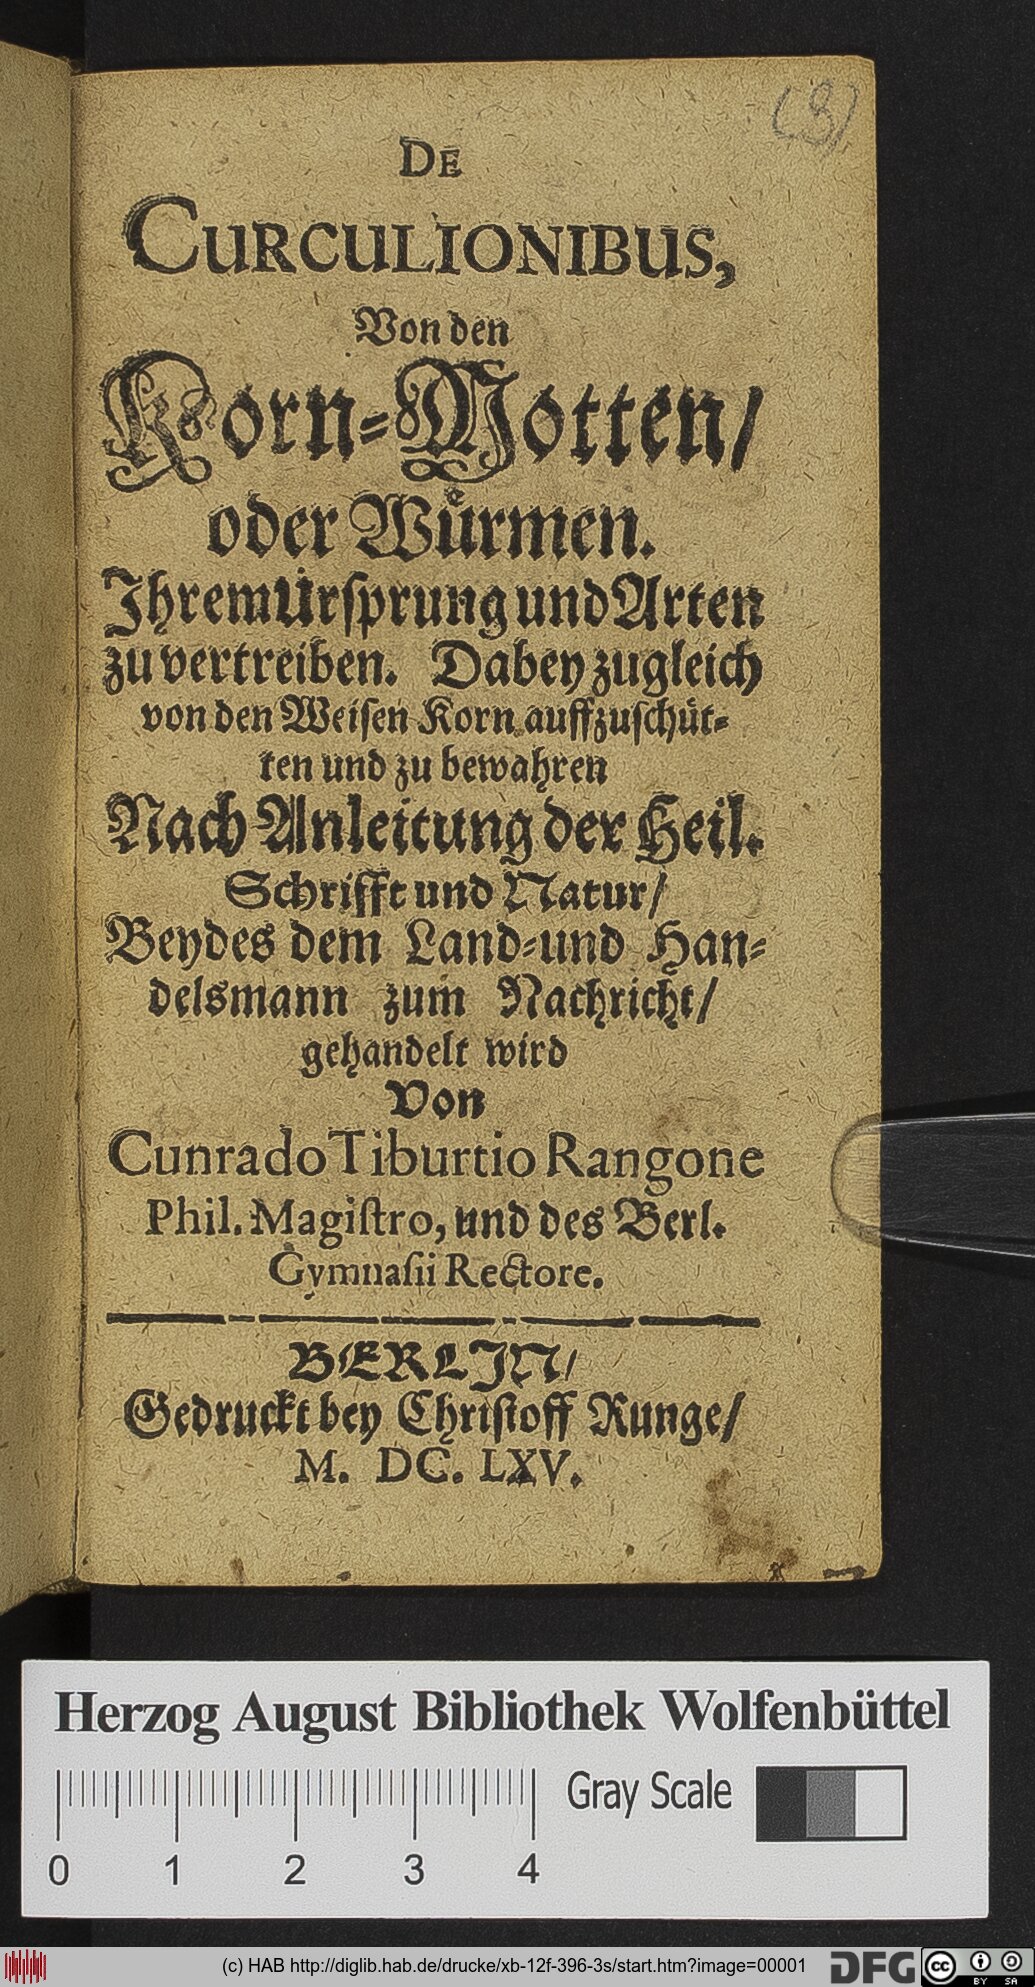 (3)
DE
CURCULIONIBUS,
Von den
Korn-Motten/
oder Wuͤrmen.
Ihrem Ursprung und Arten
zu vertreiben. Dabey zugleich
von den Weisen Korn auffzuschüt-
ten und zu bewahren
Nach Anleitung der Heil.
Schrifft und Natur/
Beydes dem Land-und Han-
delsmann zum Nachricht/
gehandelt wird
Von
Cunrado Tiburtio Rangone
Phil. Magistro, und des Berl.
Gymnasii Rectore.
BERLIN/
Gedruckt bey Christoff Runge/
M. DC. LXV.
Herzog August Bibliothek Wolfenbüttel
Gray Scale
0 1 2 3 4
(c) HAB http://diglib.hab.de/drucke/xb-12f-396-3s/start.htm?image=00001
DFG
cc BY SA